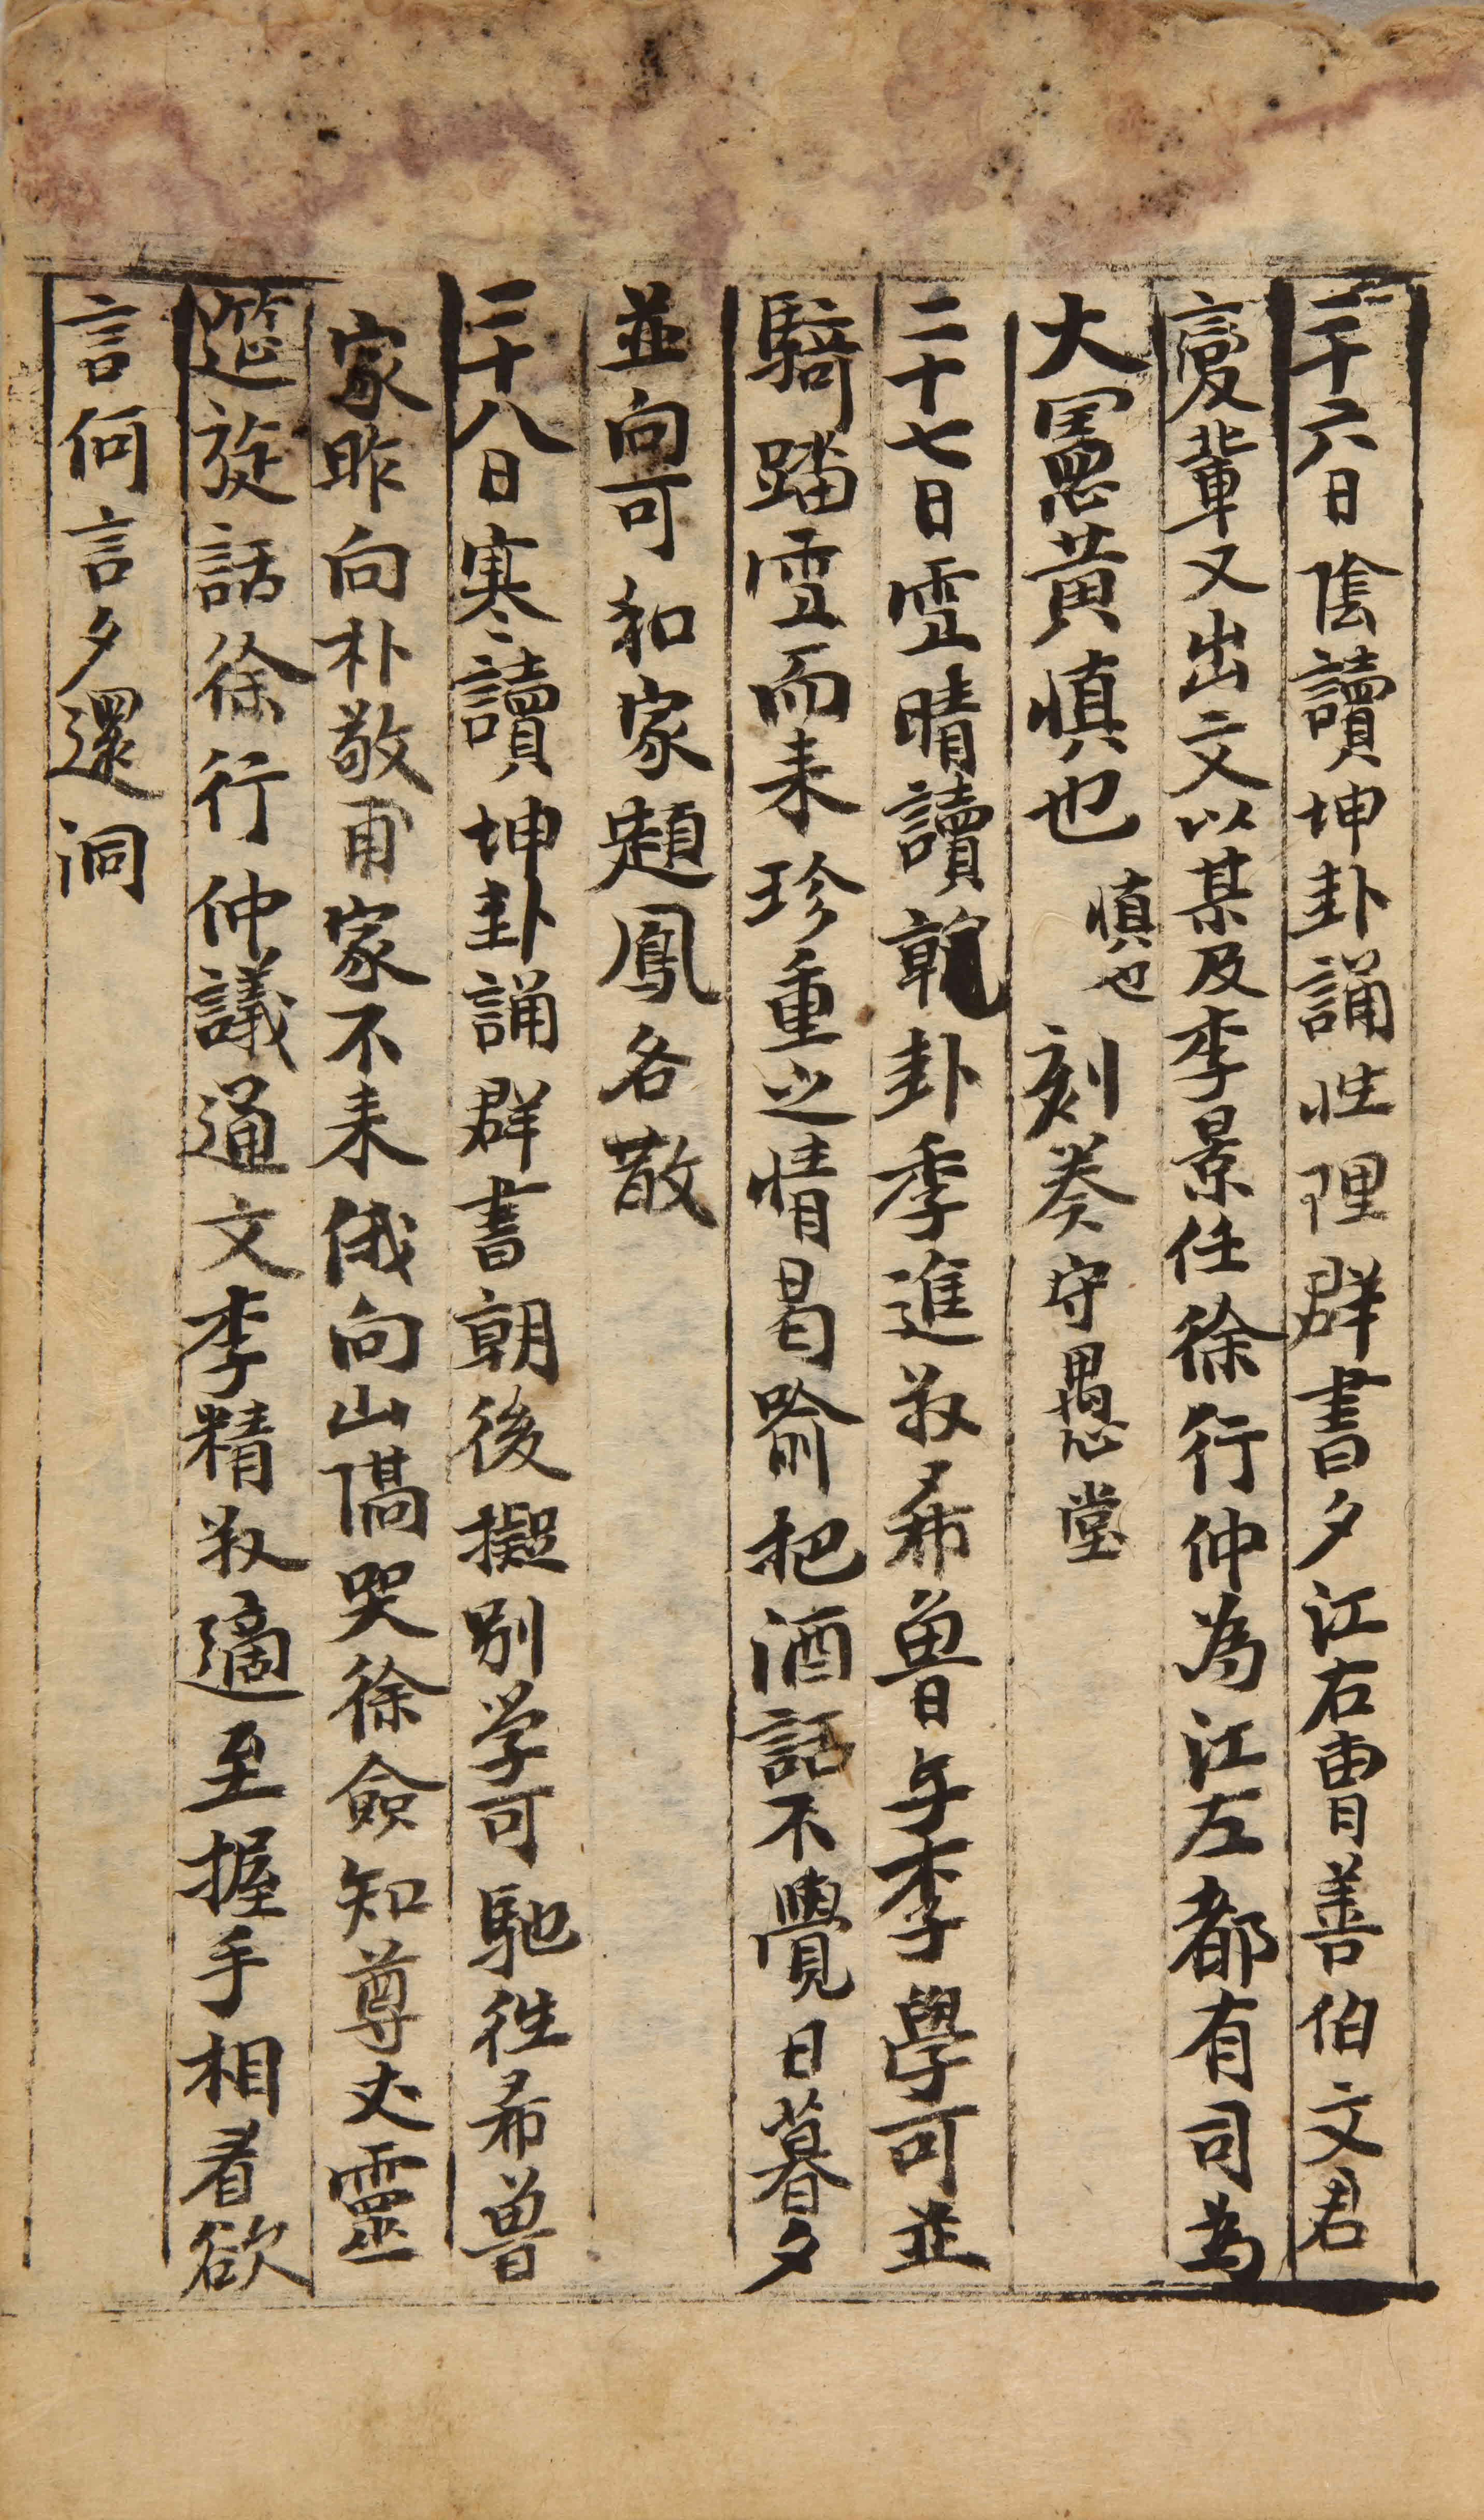 二十六日陰讀坤卦誦性理群書夕江右曺善伯文君
變輩又出文以某及李景任徐行仲為江左都有司為
大憲黃慎也 慎也 刻奏守愚堂
二十七日雪晴讀乾卦季進叔希魯与李學可並
騎踏雪而来珍重之情曷喻把酒話不覺日暮夕
並向可和家題鳳各散
二十八日寒讀坤卦誦群書朝後擬別学可馳徃希魯
家昨向朴敬甫家不来俄向山偶哭徐僉知尊丈靈
筵旋話徐行仲議通文李精叔適至握手相看欲
言何言夕還洞